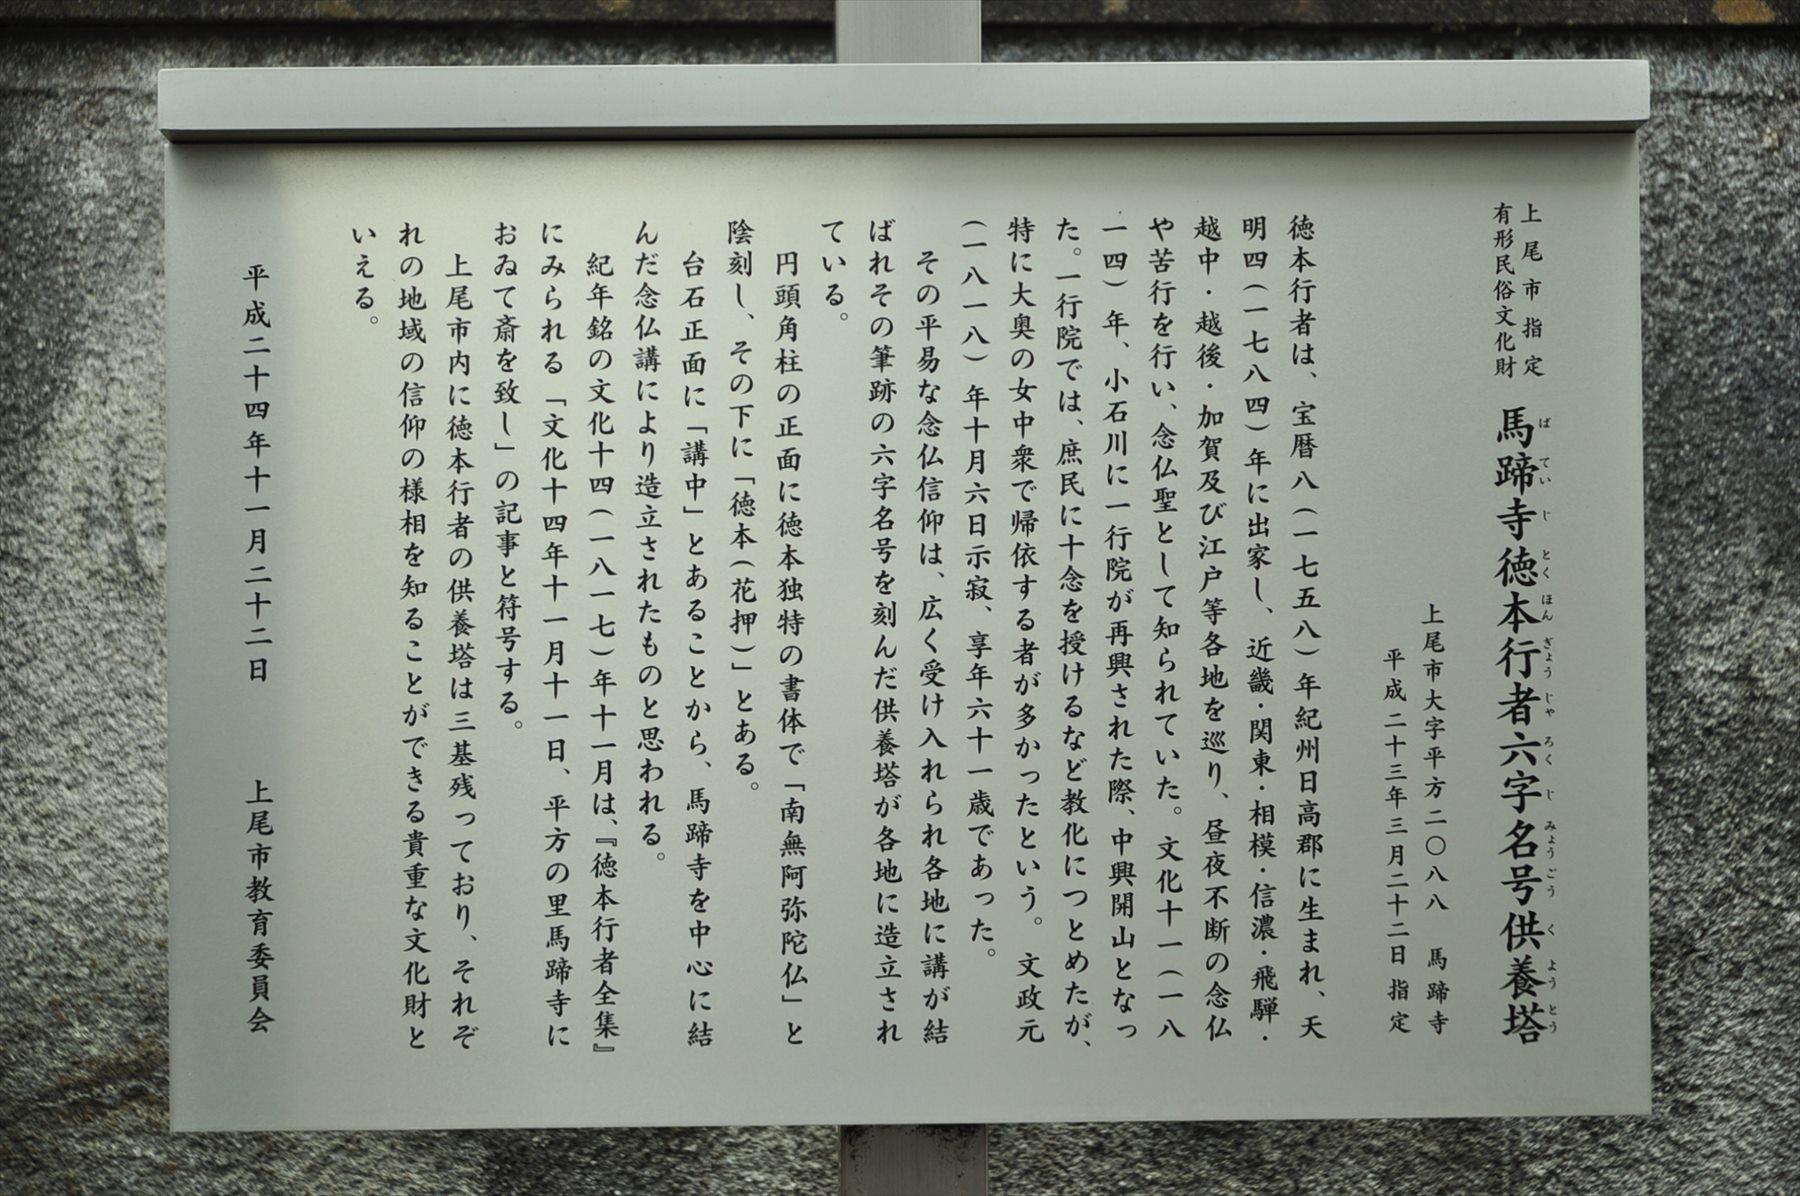 上尾市指定
有形民俗文化財
馬蹄寺徳本行者六字名号供養塔
ばていじとくほんぎょうじゃろくじみょうごうくようとう
上尾市大字平方二〇八八　馬蹄寺
平成二十三年三月二十二日 指定
徳本行者は、宝暦八(一七五八)年紀州日高郡に生まれ、天
明四(一七八四)年に出家し、近畿・関東・相模・信濃・飛騨・
越中・越後・加賀及び江戸等各地を巡り、昼夜不断の念仏
や苦行を行い、念仏聖として知られていた。文化十一(一八
一四)年、小石川に一行院が再興された際、中興開山となっ
た。一行院では、庶民に十念を授けるなど教化につとめたが、
特に大奥の女中衆で帰依する者が多かったという。文政元
(一八一八)年十月六日示寂、享年六十一歳であった。
その平易な念仏信仰は、広く受け入れられ各地に講が結
ばれその筆跡の六字名号を刻んだ供養塔が各地に造立され
ている。
円頭角柱の正面に徳本独特の書体で「南無阿弥陀仏」と
陰刻し、その下に「徳本(花押)」とある。
台石正面に「講中」とあることから、馬蹄寺を中心に結
んだ念仏講により造立されたものと思われる。
紀年銘の文化十四(一八一七)年十一月は、『徳本行者全集』
にみられる「文化十四年十一月十一日、平方の里馬蹄寺に
おゐて斎を致し」の記事と符号する。
上尾市内に徳本行者の供養塔は三基残っており、それぞ
れの地域の信仰の様相を知ることができる貴重な文化財と
いえる。
平成二十四年十一月二十二日　上尾市教育委員会